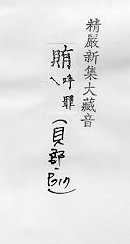 精嚴新集大藏音
賄 呼罪
(貝部·P.17)